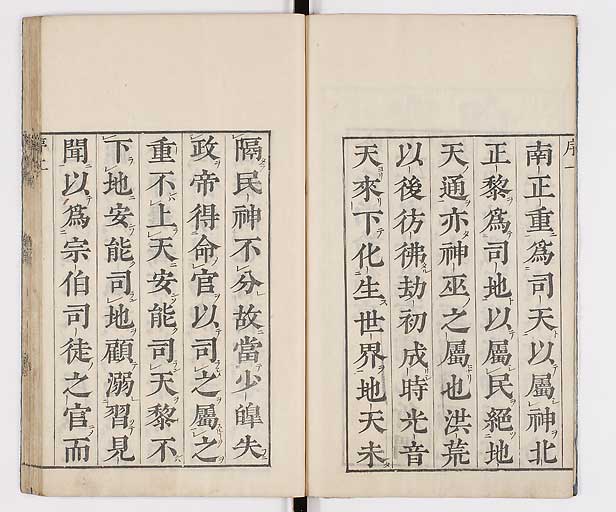 南正重爲司天以屬神北
正黎爲司地以屬民絕地
天通亦神巫之屬也洪荒
以後彷彿劫初成時光音
天來下化生世界地天未
隔民神不分故當少皞失
政帝得命官以司之屬之
重不上天安能司天黎不
下地安能司地顧溺習見
聞以爲宗伯司徒之官而